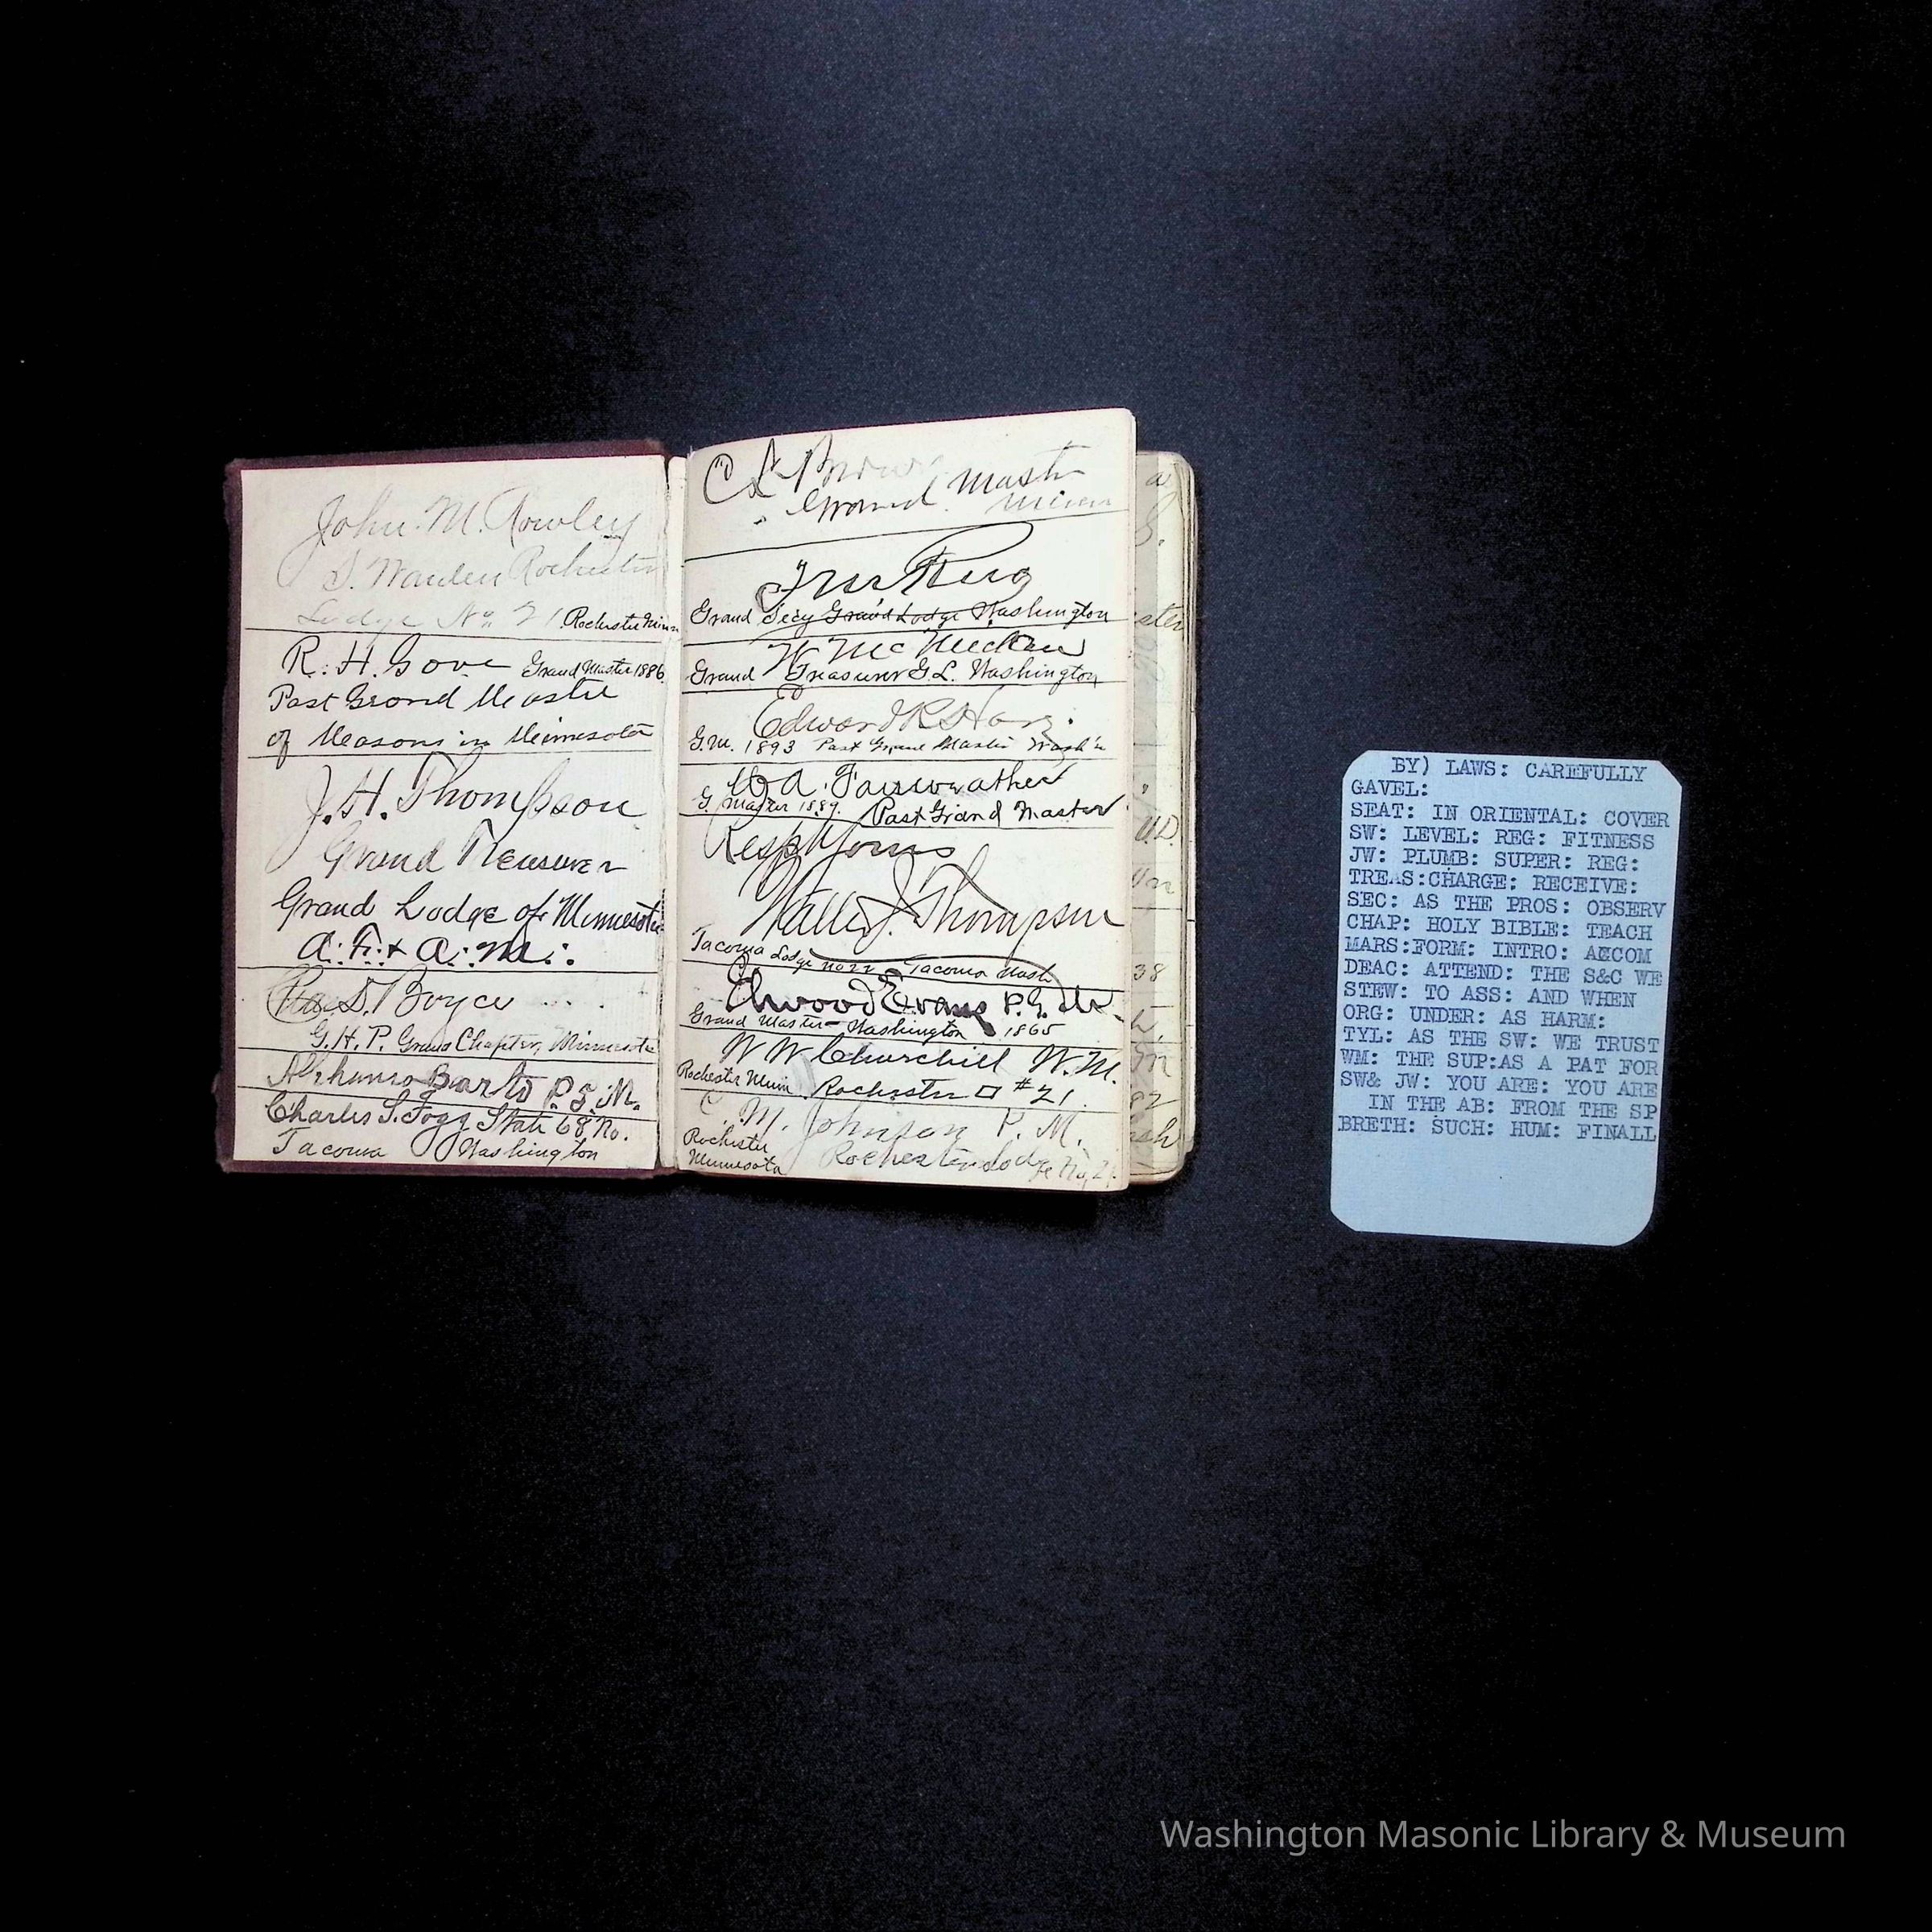 John. M. Rowley
S. Warden Rochester
Lodge No 21 Rochester Minn
R. H. Gove Grand Master 1886
Past Grand Master
of Masons in Minnesota
J. H. Thompson
Grand Treasurer
Grand Lodge of Minnesota
A.: F.: + A.: M.:
S. Boyce
G. H. P. Grand Chapter, Minnesota
Alphonso Barto P.G.M.
Charles S. Fogg State 68 No.
Tacoma Washington
C L Brown
Grand Mastr
Minn
Grand Secy Grand Lodge Washington
Grand Treasurer G. L. Washington
Edward R Hare.
G.M. 1893 Past Grand Master Wash'n
W A. Fairweather
G. Master 1889. Past Grand Master
Resp Yours
Walter J. Thompson
Tacoma Lodge No 22 Tacoma Wash
Elwood Evans P. G. Mr.
Grand Master - Washington 1865
W W Churchill W. M.
Rochester Minn Rochester □ #21.
C. M. Johnson P. M.
Rochester Rochester Lodge No, 21.
Minnesota
BY) LAWS: CAREFULLY
GAVEL:
SEAT: IN ORIENTAL: COVER
SW: LEVEL: REG: FITNESS
JW: PLUMB: SUPER: REG:
TREAS:CHARGE: RECEIVE:
SEC: AS THE PROS: OBSERV
CHAP: HOLY BIBLE: TEACH
MARS:FORM: INTRO: ACCOM
DEAC: ATTEND: THE S&C WE
STEW: TO ASS: AND WHEN
ORG: UNDER: AS HARM:
TYL: AS THE SW: WE TRUST
WM: THE SUP:AS A PAT FOR
SW& JW: YOU ARE: YOU ARE
IN THE AB: FROM THE SP
BRETH: SUCH: HUM: FINALL
Washington Masonic Library & Museum